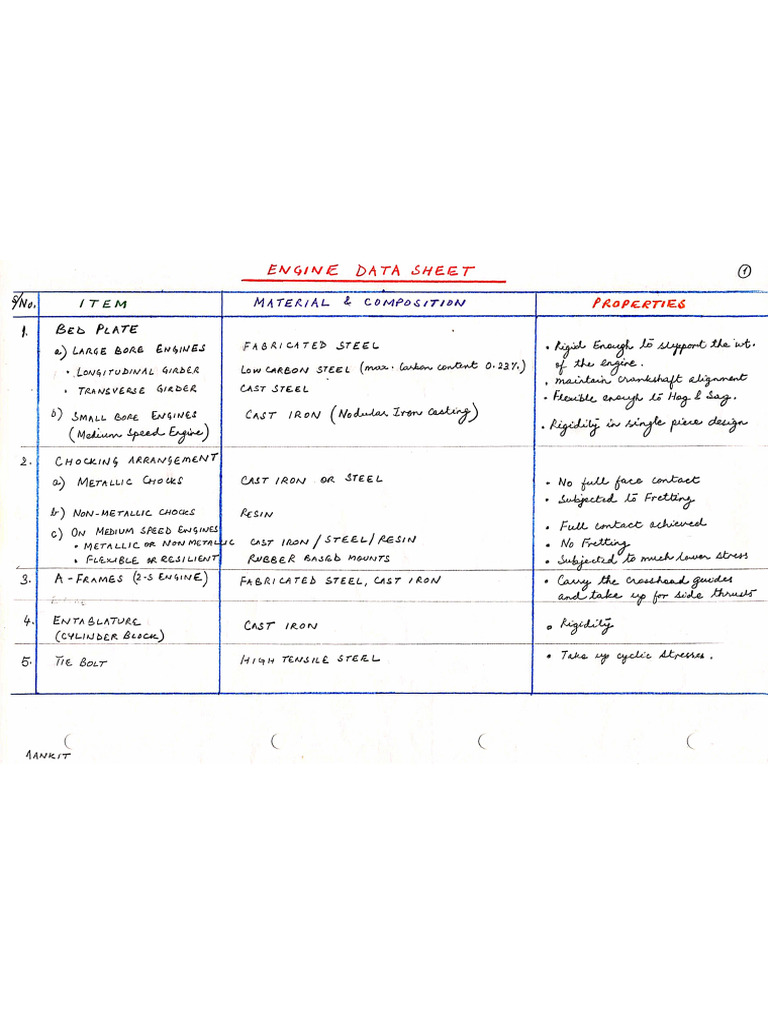 ENGINE DATA SHEET
1
S/No. ITEM MATERIAL & COMPOSITION PROPERTIES
1. BED PLATE
a) LARGE BORE ENGINES FABRICATED STEEL • Rigid Enough to support the wt. of the engine.
• LONGITUDINAL GIRDER LOW CARBON STEEL (max. Carbon content 0.23%) • maintain crankshaft alignment
• TRANSVERSE GIRDER CAST STEEL • Flexible enough to Hog & Sag.
b) SMALL BORE ENGINES CAST IRON (Nodular Iron Casting) • Rigidity in single piece design
(Medium Speed Engine)
2. CHOCKING ARRANGEMENT
a) METALLIC CHOCKS CAST IRON OR STEEL • No full face contact
• Subjected to Fretting
b) NON-METALLIC CHOCKS RESIN • Full contact achieved
c) ON MEDIUM SPEED ENGINES
• METALLIC OR NON METALLIC CAST IRON / STEEL / RESIN • No Fretting
• FLEXIBLE OR RESILIENT RUBBER BASED MOUNTS • Subjected to much lower stress
3. A-FRAMES (2-S ENGINE) FABRICATED STEEL, CAST IRON • Carry the crosshead guides
and take up for side thrusts
4. ENTABLATURE CAST IRON • Rigidity
(CYLINDER BLOCK)
5. TIE BOLT HIGH TENSILE STEEL • Take up cyclic stresses.
AANKIT